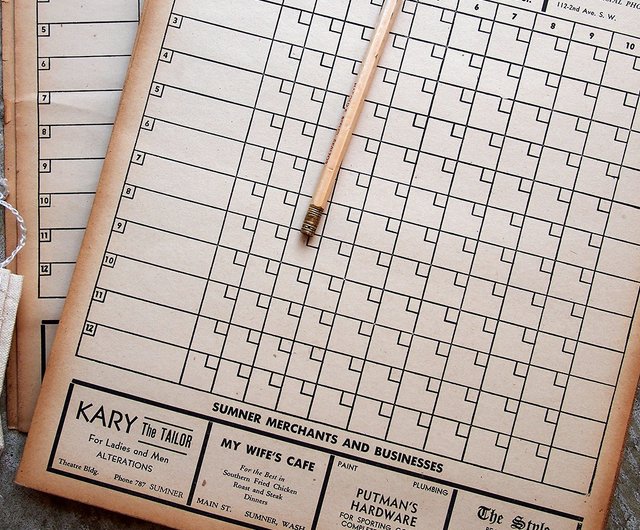 5
6
7
8
9
10
11
12
112-2nd Ave. S. W.
6 7 8 9 10
3
4
5
6
7
8
9
10
11
12
SUMNER MERCHANTS AND BUSINESSES
KARY The TAILOR
For Ladies and Men
ALTERATIONS
Theatre Bldg. Phone 787 SUMNER
MY WIFE'S CAFE
For the Best in
Southern Fried Chicken
Roast and Steak
Dinners
MAIN ST. SUMNER, WASH
PAINT PLUMBING
PUTMAN'S
HARDWARE
FOR SPORTING
The Style